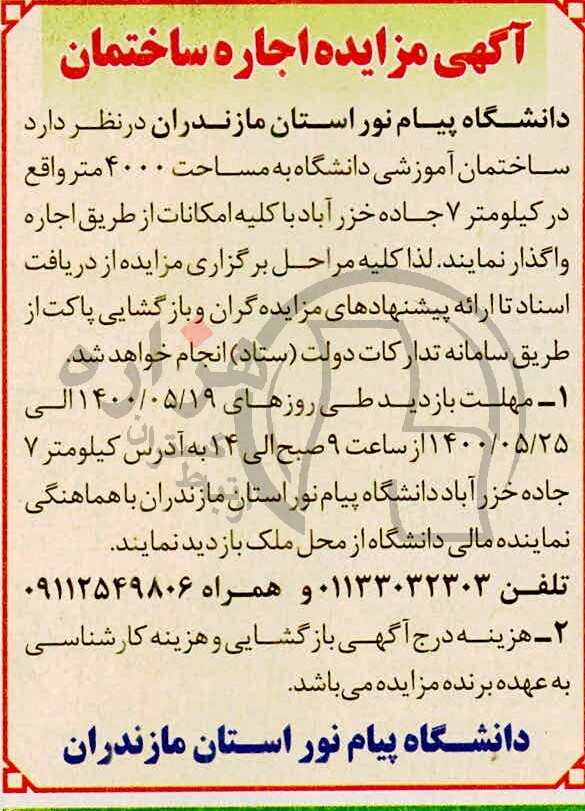 آگهی مزایده اجاره ساختمان
دانشگاه پیام نور استان مازندران در نظر دارد
ساختمان آموزشی دانشگاه به مساحت ۴۰۰۰ متر واقع
در کیلومتر ۷ جاده خزر آباد با کلیه امکانات از طریق اجاره
واگذار نمایند. لذا کلیه مراحل برگزاری مزایده از دریافت
اسناد تا ارائه پیشنهادهای مزایده گران و بازگشایی پاکت از
طریق سامانه تدارکات دولت (ستاد) انجام خواهد شد.
۱ـ مهلت بازدید طی روزهای ۱۴۰۰/۰۵/۱۹ الی
۱۴۰۰/۰۵/۲۵ از ساعت ۹ صبح الی ۱۴ به آدرس کیلومتر ۷
جاده خزر آباد دانشگاه پیام نور استان مازندران با هماهنگی
نماینده مالی دانشگاه از محل ملک بازدید نمایند.
تلفن ۰۱۱۳۳۰۳۲۳۰۳ و همراه ۰۹۱۱۲۵۴۹۸۰۶
۲ـ هزینه درج آگهی بازگشایی و هزینه کارشناسی
به عهده برنده مزایده می باشد.
دانشگاه پیام نور استان مازندران
هزاره